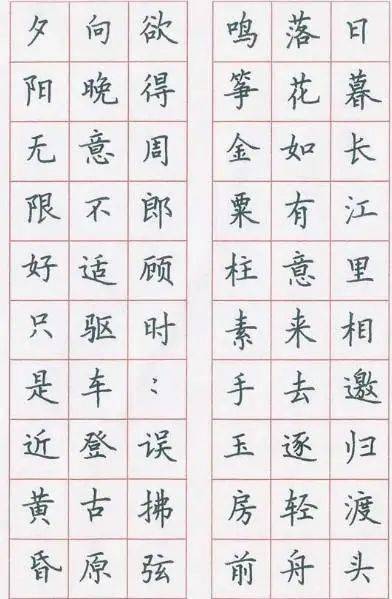 日暮长江里相邀归渡头
落花如有意来去逐轻舟
鸣筝金粟柱素手玉房前
欲得周郎顾时：误拂弦
向晚意不适驱车登古原
夕阳无限好只是近黄昏